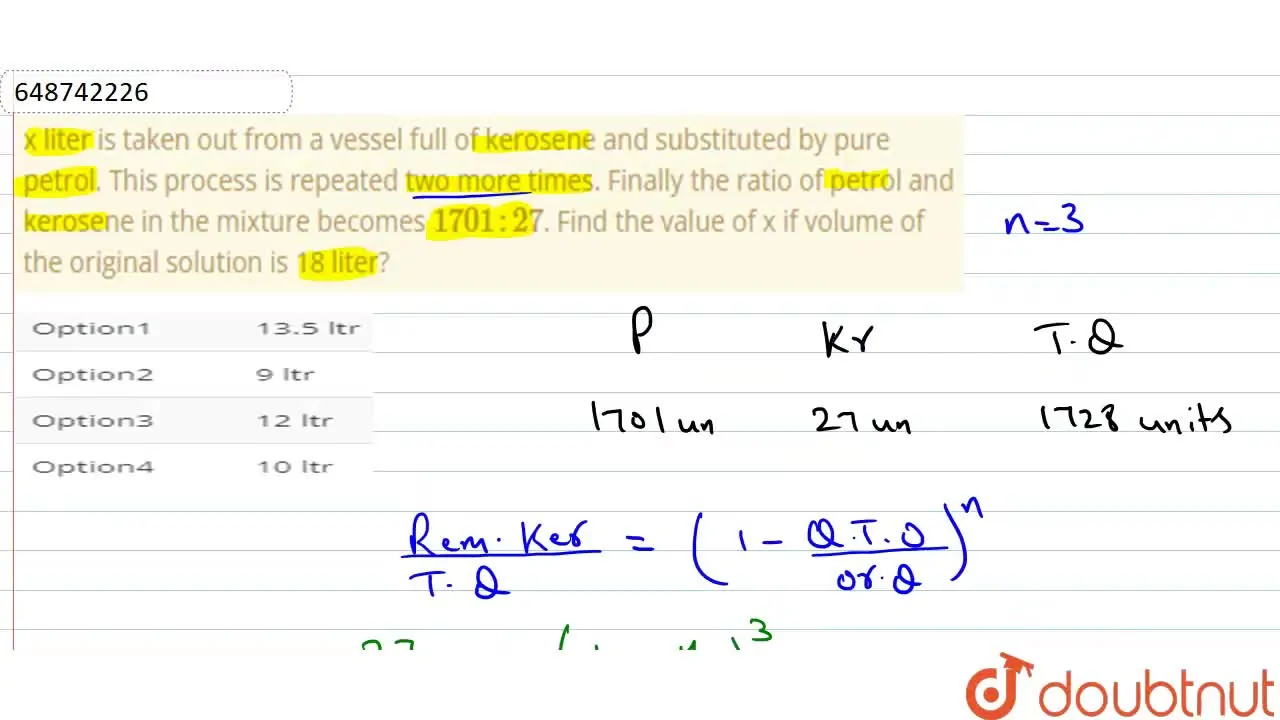 648742226
x liter is taken out from a vessel full of kerosene and substituted by pure
petrol. This process is repeated two more times. Finally the ratio of petrol and
kerosene in the mixture becomes 1701 : 27. Find the value of x if volume of
the original solution is 18 liter?
n=3
Option1 13.5 ltr
Option2 9 ltr
Option3 12 ltr
Option4 10 ltr
P Kr T.Q
1701 un 27 un 1728 units
Rem. Ker / T. Q = (1 - Q.T.O / or. Q)^n
doubtnut